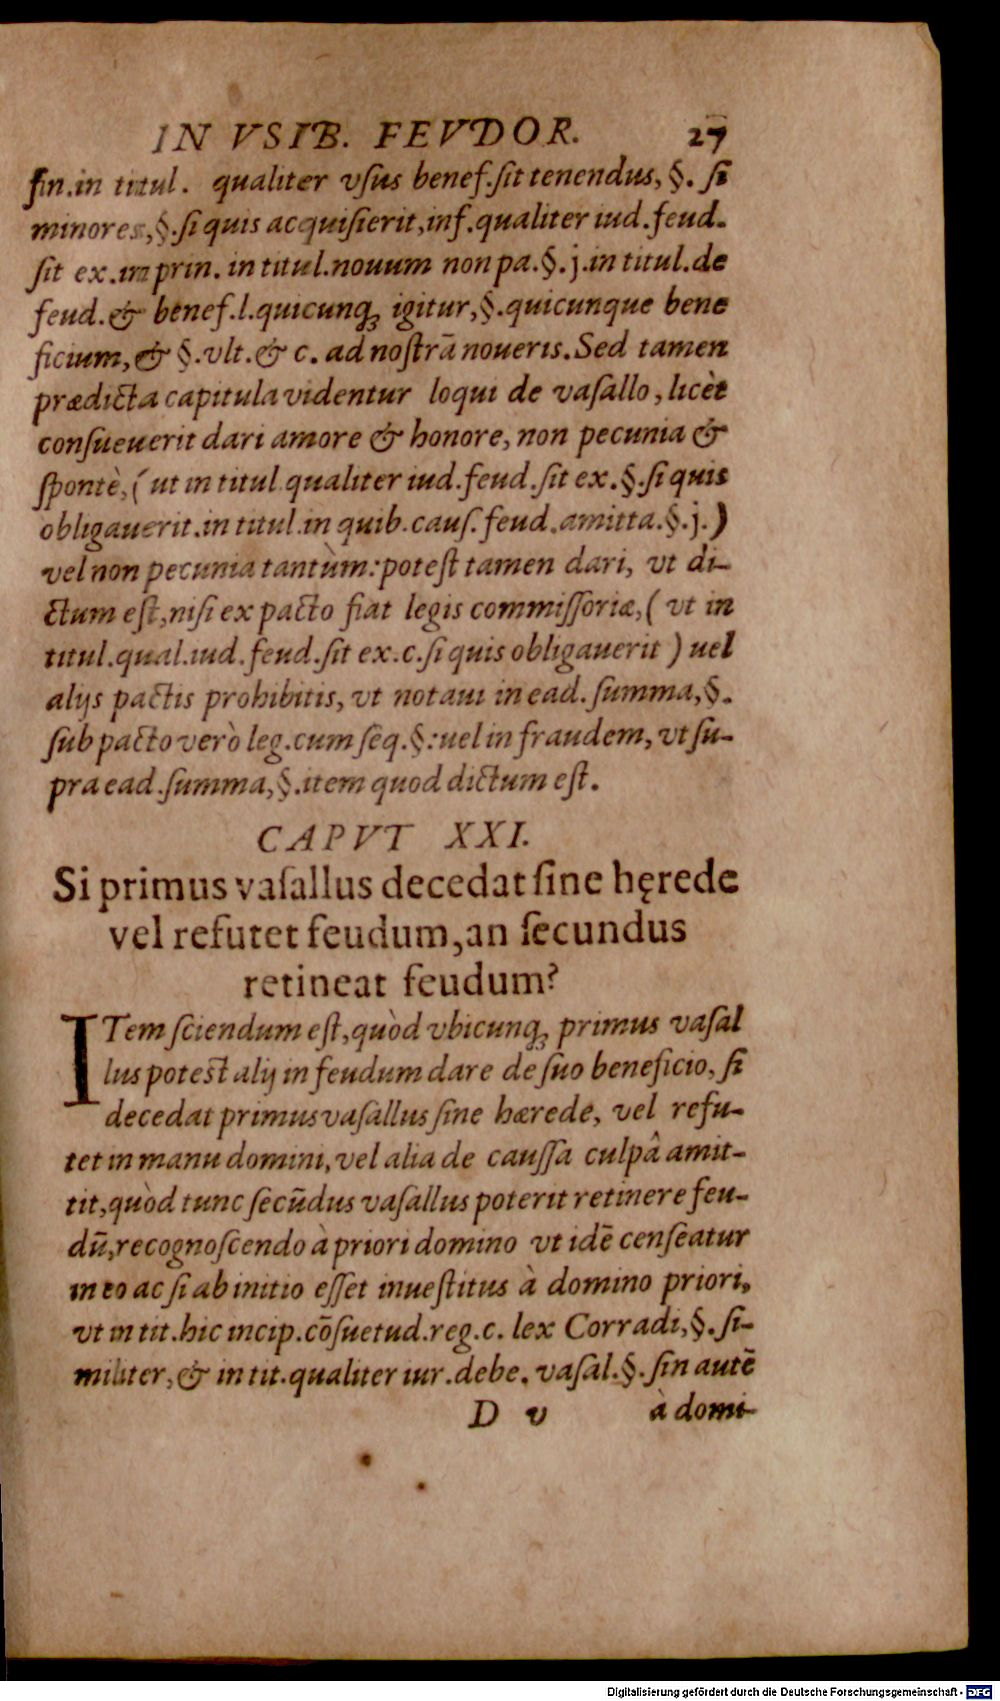 IN VSIB. FEVDOR. 27
fin.in titul. qualiter vſus benef.ſit tenendus, §. ſi
minores,§.ſi quis acquiſierit,inf.qualiter iud.feud.
ſit ex.in prin. in titul.nouum non pa.§.j.in titul.de
feud.& benef.l.quicunq; igitur,§.quicunque bene
ficium,& §.vlt.& c. ad noſtrā noueris.Sed tamen
prædicta capitula videntur loqui de vaſallo, licèt
conſueuerit dari amore & honore, non pecunia &
ſpontè,(ut in titul.qualiter iud.feud.ſit ex.§.ſi quis
obligauerit.in titul.in quib.cauſ.feud.amitta.§.j.)
vel non pecunia tantùm:poteſt tamen dari, vt di-
ctum eſt,niſi ex pacto fiat legis commiſſoriæ,( vt in
titul.qual.iud.feud.ſit ex.c.ſi quis obligauerit ) uel
alijs pactis prohibitis, vt notaui in ead.ſumma,§.
ſub pacto verò leg.cum ſeq.§:uel in fraudem, vt ſu-
pra ead.ſumma,§.item quod dictum eſt.
CAPVT XXI.
Si primus vaſallus decedat ſine hęrede
vel refutet feudum,an ſecundus
retineat feudum?
ITem ſciendum eſt,quòd vbicunq; primus vaſal
lus poteſt alij in feudum dare de ſuo beneficio, ſi
decedat primus vaſallus ſine hærede, vel refu-
tet in manu domini,vel alia de cauſſa culpâ amit-
tit,quòd tunc ſecūdus vaſallus poterit retinere feu-
dū,recognoſcendo à priori domino vt idē cenſeatur
in eo ac ſi ab initio eſſet inueſtitus à domino priori,
vt in tit.hic incip.cōſuetud.reg.c. lex Corradi,§.ſi-
militer,& in tit.qualiter iur.debe. vaſal.§.ſin autē
D v à domi-
Digitalisierung gefördert durch die Deutsche Forschungsgemeinschaft - DFG